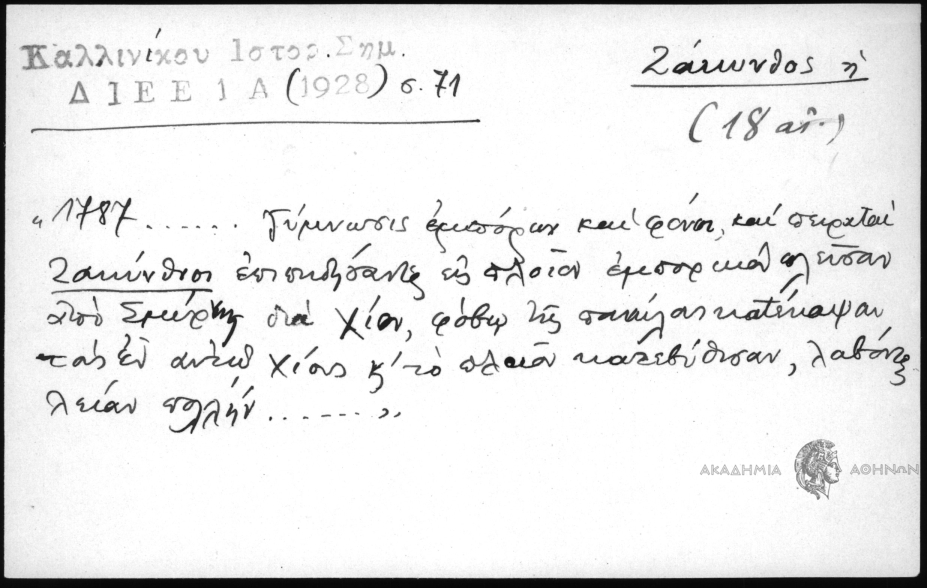 Καλλινίκου Ιστορ. Σημ.
ΔΙΕΕ 1Α (1928) σ. 71
Ζάκυνθος ἡ
(18 αἰ.)
"1787 ...... Γύμνωσις ἐμπόρων καὶ φόνοι, καὶ πειραταὶ
Ζακύνθιοι ἐπιπηδήσαντες εἰς πλοῖον ἐμπορικὸν πλεῦσαν
ἀπὸ Σμύρνης διὰ Χίον, φόβῳ τῆς πανώλης κατέκαψαν
τοὺς ἐν αὐτῷ Χίους κ' τὸ πλοῖον κατεβύθισαν, λαβόντες
λείαν πολλήν ......."
ΑΚΑΔΗΜΙΑ ΑΘΗΝΩΝ